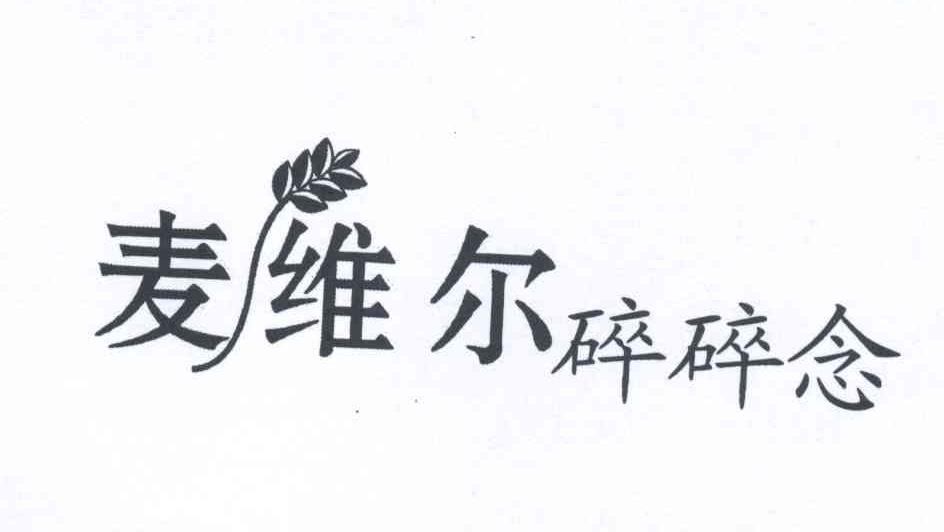 麦维尔碎碎念